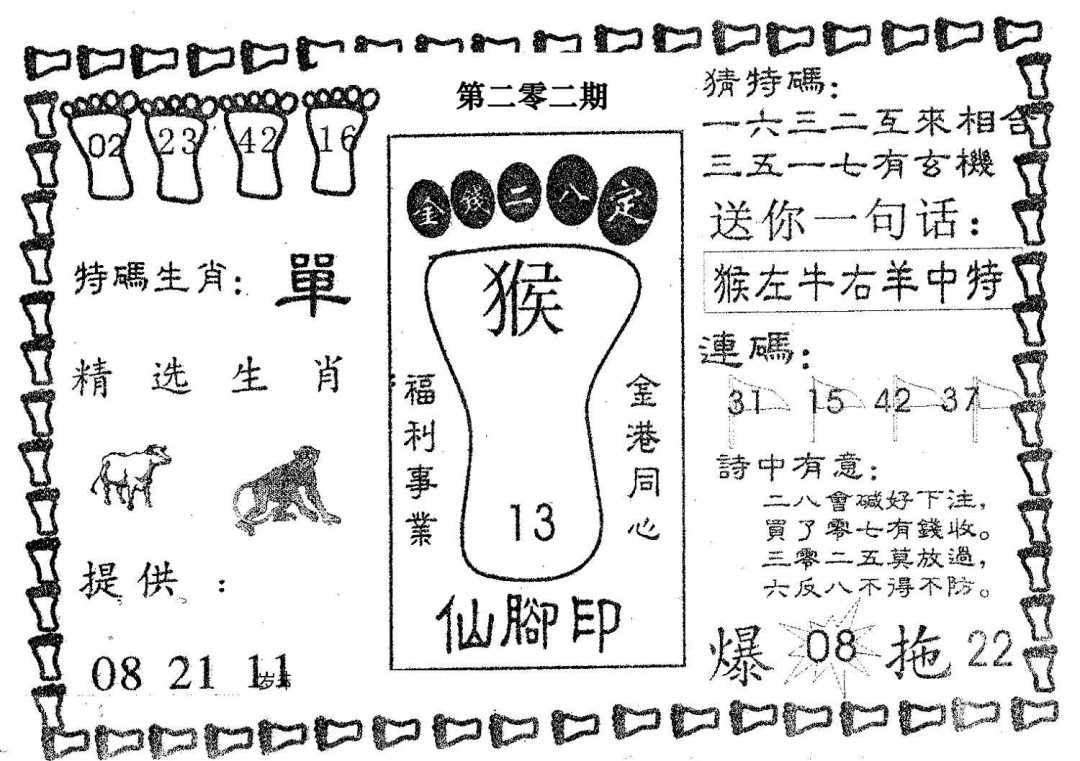 第二零二期
02 23 42 16
特碼生肖：單
精选生肖
提供：
08 21 11
金錢二八定
猴
福利事業
金港同心
13
仙腳印
猜特碼：
一六三二互來相合
三五一七有玄機
送你一句话：
猴左牛右羊中特
連碼：
31 15 42 37
詩中有意：
二八會碱好下注，
買了零七有錢收。
三零二五莫放過，
六反八不得不防。
爆 08 拖 22